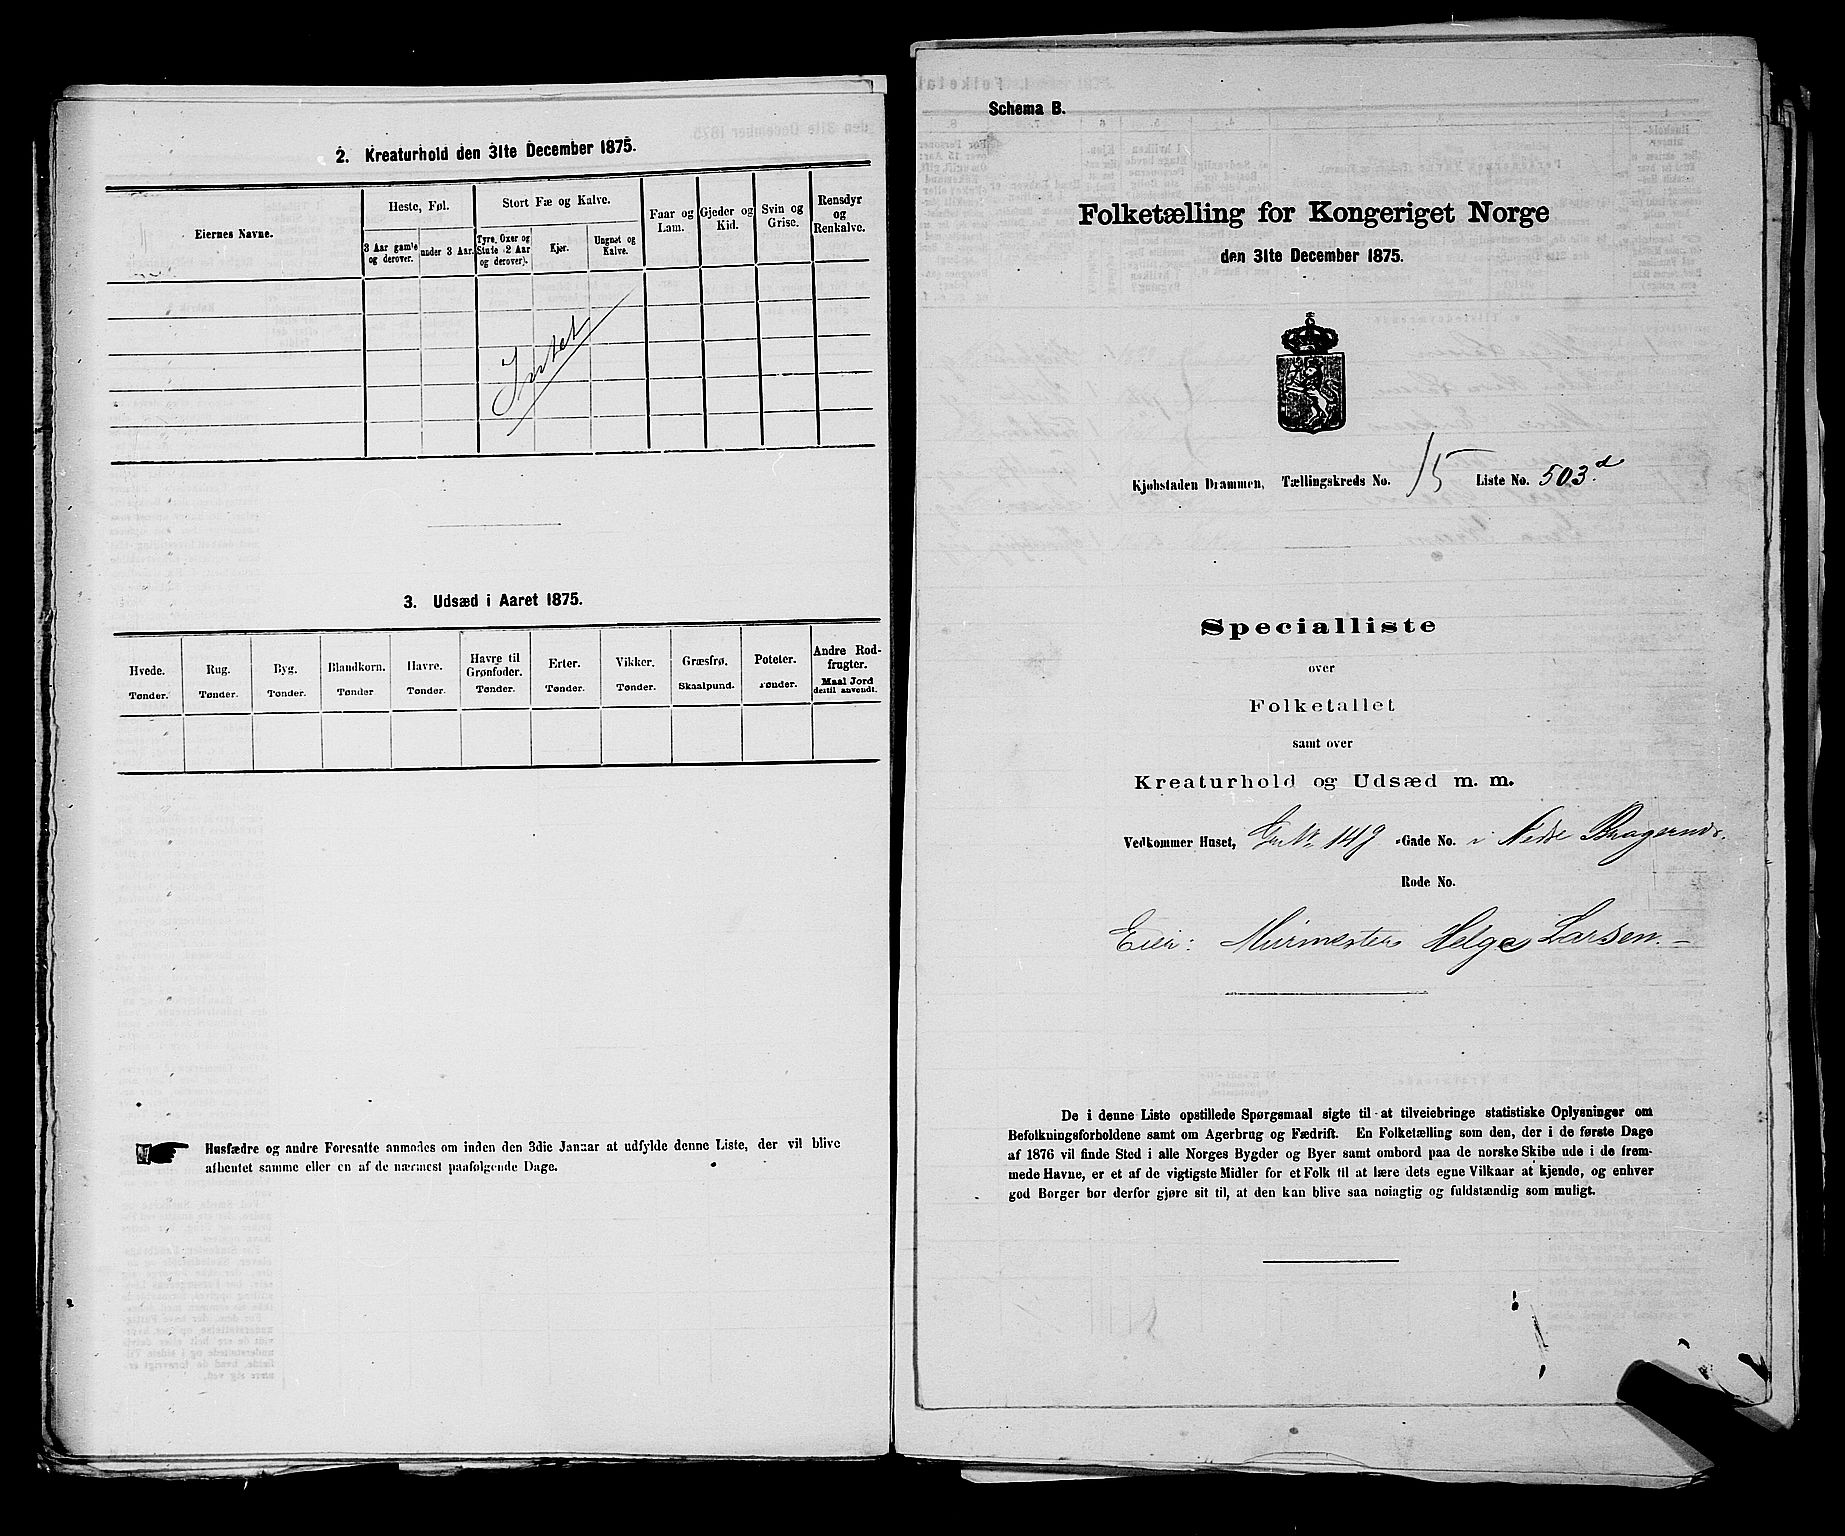 2. Kreaturhold den 31te December 1875.
Eiernes Navne.
Heste, Føl.
3 Aar gamle og derover.
under 3 Aar.
Stort Fæ og Kalve.
Tyre, Oxer og Stude (2 Aar og derover).
Kjør.
Ungnøt og Kalve.
Faar og Lam.
Gjeder og Kid.
Svin og Grise.
Rensdyr og Renkalve.
Intet
3. Udsæd i Aaret 1875.
Hvede. Tønder.
Rug. Tønder.
Byg. Tønder.
Blandkorn. Tønder
Havre. Tønder.
Havre til Grønfoder. Tønder.
Erter. Tønder.
Vikker. Tønder.
Græsfrø. Skaalpund.
Poteter. Tønder.
Andre Rodfrugter. Maal Jord dertil anvendt.
Husfædre og andre Foresatte anmodes om inden den 3die Januar at udfylde denne Liste, der vil blive
afhentet samme eller en af de nærmest paafølgende Dage.
Schema B.
Folketælling for Kongeriget Norge
den 31te December 1875.
Kjøbstaden Drammen, Tællingskreds No. 15 Liste No. 503 d
Specialliste
over
Folketallet
samt over
Kreaturhold og Udsæd m. m.
Vedkommer Huset, Gr. No. 149 -Gade No. i Nedre Bragernæs.
Rode No.
Eier: Murmester Helge Larsen.
De i denne Liste opstillede Spørgsmaal sigte til at tilveiebringe statistiske Oplysninger om
Befolkningsforholdene samt om Agerbrug og Fædrift. En Folketælling som den, der i de første Dage
af 1876 vil finde Sted i alle Norges Bygder og Byer samt ombord paa de norske Skibe ude i de frem-
mede Havne, er et af de vigtigste Midler for et Folk til at lære dets egne Vilkaar at kjende, og enhver
god Borger bør derfor gjøre sit til, at den kan blive saa nøiagtig og fuldstændig som muligt.